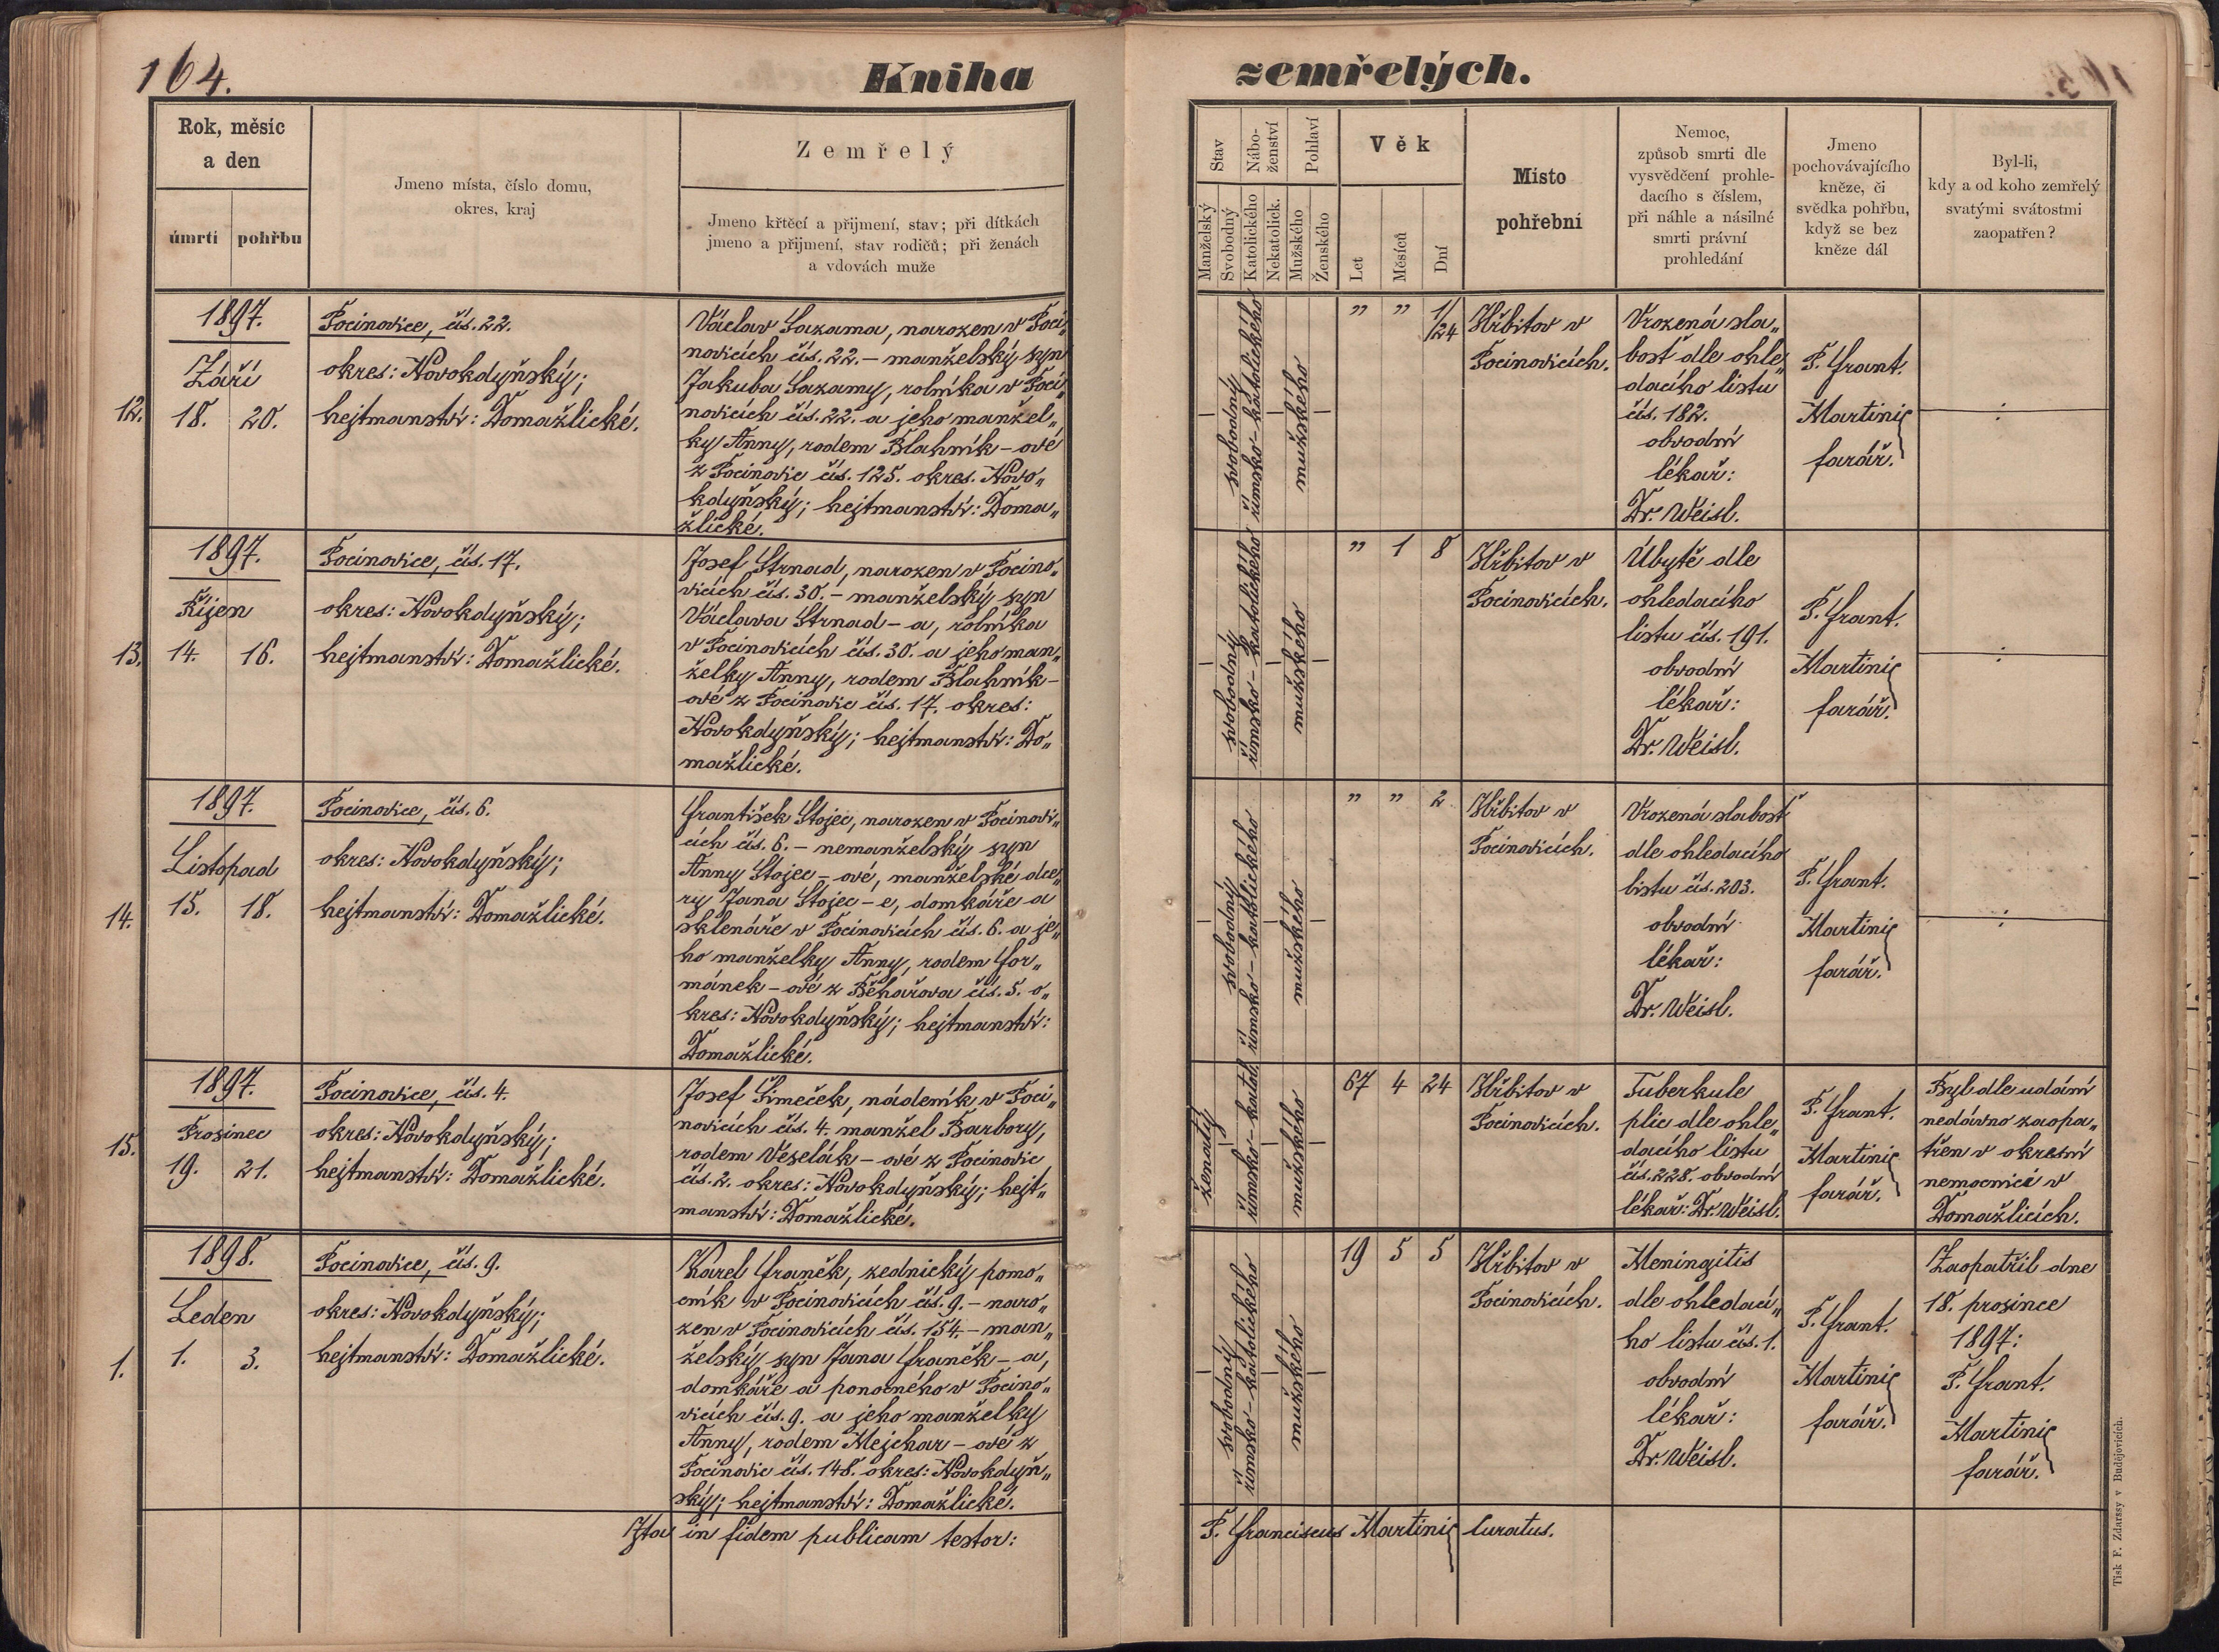 164.
Kniha
zemřelých.
Rok, měsíc
a den
úmrtí
pohřbu
Jmeno místa, číslo domu,
okres, kraj
Zemřelý
Jmeno křtěcí a přijmení, stav; při dítkách
jmeno a přijmení, stav rodičů; při ženách
a vdovách muže
Stav
Manželský
Svobodný
Nábo-
ženství
Katolického
Nekatolick.
Pohlaví
Mužského
Ženského
Věk
Let
Měsíců
Dní
Místo
pohřební
Nemoc,
způsob smrti dle
vysvědčení prohle-
dacího s číslem,
při náhle a násilné
smrti právní
prohledání
Jmeno
pochovávajícího
kněze, či
svědka pohřbu,
když se bez
kněze dál
Byl-li,
kdy a od koho zemřelý
svatými svátostmi
zaopatřen?
12.
1897.
Září
18. 20.
Pocinovice, čís. 22.
okres: Novokdyňský;
hejtmanství: Domažlické.
Václav Sazama, narozen v Poci„
novicích čís. 22. – manželský syn
Jakuba Sazamy, rolníka v Poci„
novicích čís. 22. a jeho manžel„
ky Anny, rodem Blahník – ové
z Pocinovic čís. 125. okres. Novo„
kdyňský; hejtmanství: Doma„
žlické.
svobodný
římsko – katolického
mužského
" " 1/24
Hřbitov v
Pocinovicích.
Vrozená sla„
bosť dle ohle„
dacího listu
čís. 182.
obvodní
lékař:
Dr. Weisl.
P. Frant.
Martinic
farář.
13.
1897.
Říjen
14. 16.
Pocinovice, čís. 17.
okres: Novokdyňský;
hejtmanství: Domažlické.
Josef Strnad, narozen v Pocino„
vicích čís. 30. – manželský syn
Václava Strnad – a, rolníka
v Pocinovicích čís. 30. a jeho man„
želky Anny, rodem Blahník –
ové z Pocinovic čís. 17. okres:
Novokdyňský; hejtmanství: Do„
mažlické.
svobodný
římsko – katolického
mužského
" 1 8
Hřbitov v
Pocinovicích.
Úbytě dle
ohledacího
listu čís. 191.
obvodní
lékař:
Dr. Weisl.
P. Frant.
Martinic
farář.
14.
1897.
Listopad
15. 18.
Pocinovice, čís. 6.
okres: Novokdyňský;
hejtmanství: Domažlické.
František Stojec, narozen v Pocinovi„
cích čís. 6. – nemanželský syn
Anny Stojec – ové, manželské dce„
ry Jana Stojec – e, domkáře a
sklenáře v Pocinovicích čís. 6. a je„
ho manželky Anny, rodem For„
mánek – ové z Běhařova čís. 5. o„
kres: Novokdyňský; hejtmanství:
Domažlické.
svobodný
římsko – katolického
mužského
" " 2
Hřbitov v
Pocinovicích.
Vrozená slabosť
dle ohledacího
listu čís. 203.
obvodní
lékař:
Dr. Weisl.
P. Frant.
Martinic
farář.
15.
1897.
Prosinec
19. 21.
Pocinovice, čís. 4.
okres: Novokdyňský;
hejtmanství: Domažlické.
Josef Šimeček, nádeník v Poci„
novicích čís. 4. manžel Barbory,
rodem Veselák – ové z Pocinovic
čís. 2. okres: Novokdyňský; hejt„
manství: Domažlické.
ženatý
římsko – katol.
mužského
67 4 24
Hřbitov v
Pocinovicích.
Tuberkule
plic dle ohle„
dacího listu
čís. 228. obvodní
lékař: Dr. Weisl.
P. Frant.
Martinic
farář.
Byl dle udání
nedávno zaopa„
třen v okresní
nemocnici v
Domažlicích.
1.
1898.
Leden
1. 3.
Pocinovice, čís. 9.
okres: Novokdyňský;
hejtmanství: Domažlické.
Karel Franěk, zednický pomo„
cník v Pocinovicích čís. 9. – naro„
zen v Pocinovicích čís. 154. – man„
želský syn Jana Franěk – a,
domkáře a ponocného v Pocino„
vicích čís. 9. a jeho manželky
Anny, rodem Mejchar – ové z
Pocinovic čís. 148. okres: Novokdyň„
ský; hejtmanství: Domažlické.
svobodný
římsko – katolického
mužského
19 5 5
Hřbitov v
Pocinovicích.
Meningitis
dle ohledací„
ho listu čís. 1.
obvodní
lékař:
Dr. Weisl.
P. Frant.
Martinic
farář.
Zaopatřil dne
18. prosince
1897:
P. Frant.
Martinic
farář.
Ita in fidem publicam testor:
P. Franciscus Martinic Curatus.
Tisk F. Zdarssy v Budějovicích.